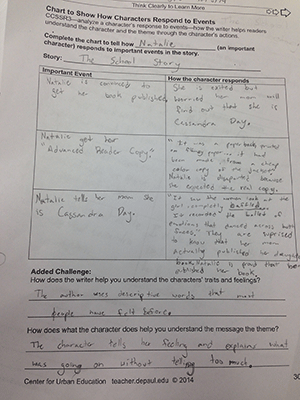 Think Clearly to Learn More
Chart to Show How Characters Respond to Events
CCSSR3—analyze a character's response to events—how the writer helps readers
understand the character and the theme through the character's actions.
Complete the chart to tell how Natalie (an important
character) responds to important events in the story.
Story: The School Story
Important Event
How the character responds
Natalie is convinced to
get her book published
She is exited but
worried her mom will
find out that she is
Cassandra Day.
Natalie got her
"Advanced Reader Copy."
"It was a paperback printed
on cheap paper and it had
been made from a cheap
color copy of the jacket."
Natalie is disapointed because
she expected the real copy.
Natalie tells her mom she
is Cassandra Day.
"If you the woman look at the
girl completely baffled
It recorded the ballet of
emotions that danced across both
faces." They are suprised
to know that her mom
actually published her daughter
book. Natalie is proud that her
published her book.
Added Challenge:
How does the writer help you understand the character's traits and feelings?
The author uses descriptive words that most
people have felt before.
How does what the character does help you understand the message the theme?
The character tells her feeling and explains what
was going on without telling too much.
Center for Urban Education teacher.depaul.edu © 2014
30